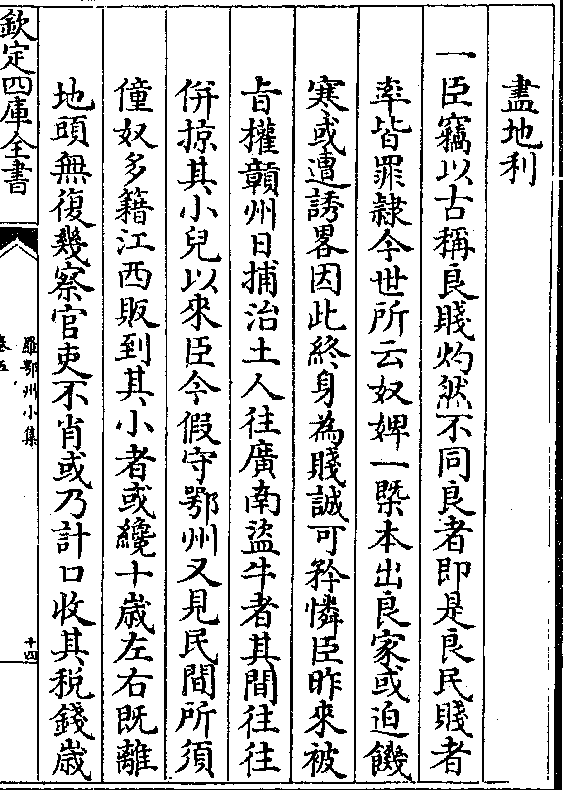 盡地利
一臣竊以古稱良賤灼然不同良者即是良民賤者
率皆罪隷今世所云奴婢一槩本出良家或迫饑
寒或遭誘畧因此終身為賤誠可矜憐臣昨來被
㫖權贛州日捕治土人往廣南盜牛者其間往往
併掠其小兒以來臣今假守鄂州又見民間所須
僮奴多籍江西販到其小者或纔十歳左右既離
地頭無復幾察官吏不肖或乃計口收其税錢歳
欽定四庫全書
羅鄂州小集
卷五
十四